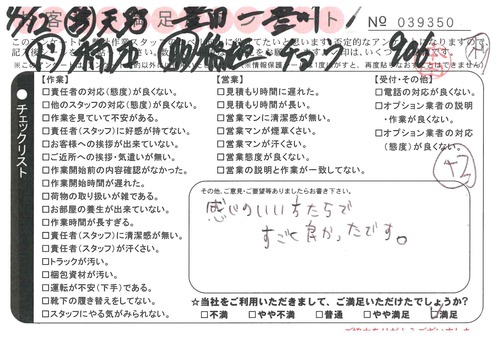 お客様満足アンケート
No 039350
4/12
【作業】
□責任者の対応（態度）が良くない。
□他のスタッフの対応（態度）が良くない。
□作業を見ていて不安がある。
□責任者（スタッフ）に好感が持てない。
□お客様への挨拶が出来ていない。
□ご近所への挨拶・気遣いが無い。
□作業開始前の内容確認がなかった。
□作業開始時間が遅れた。
□荷物の取り扱いが雑である。
□お部屋の養生が出来ていない。
□作業時間が長すぎる。
□責任者（スタッフ）に清潔感が無い。
□責任者（スタッフ）が汗くさい。
□トラックが汚い。
□梱包資材が汚い。
□運転が不安（下手）である。
□靴下の履き替えをしてない。
□スタッフにやる気がみられない。
【営業】
□見積もり時間に遅れた。
□見積もり時間が長い。
□営業マンに清潔感が無い。
□営業マンが煙草くさい。
□営業マンが汗くさい。
□営業態度が良くない。
□営業の説明と作業が一致してない。
【受付・その他】
□電話の対応が良くない。
□オプション業者の説明
・作業が良くない。
□オプション業者の対応
（態度）が良くない。
チェックリスト
その他、ご意見・ご要望等ありましたらお書き下さい。
感じのいい方たちで
すごく良かったです。
☆当社をご利用いただきまして、ご満足いただけたでしょうか?
□不満 □やや不満 □普通 □やや満足 □満足